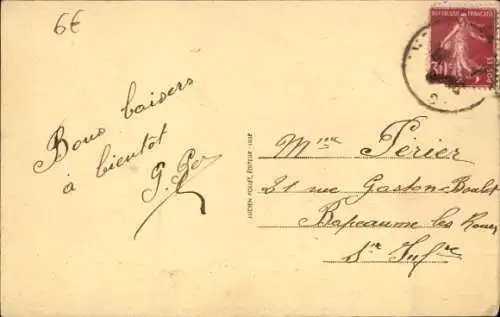 6€
Bons baisers
à bientôt
G. Per
LUCIEN POLLET, ÉDITEUR - LILLE
REPUBLIQUE FRANÇAISE
30c
POSTES
Mme Périer
21 rue Gaston-Boulet
Bapeaume les Rouen
Sne Infre